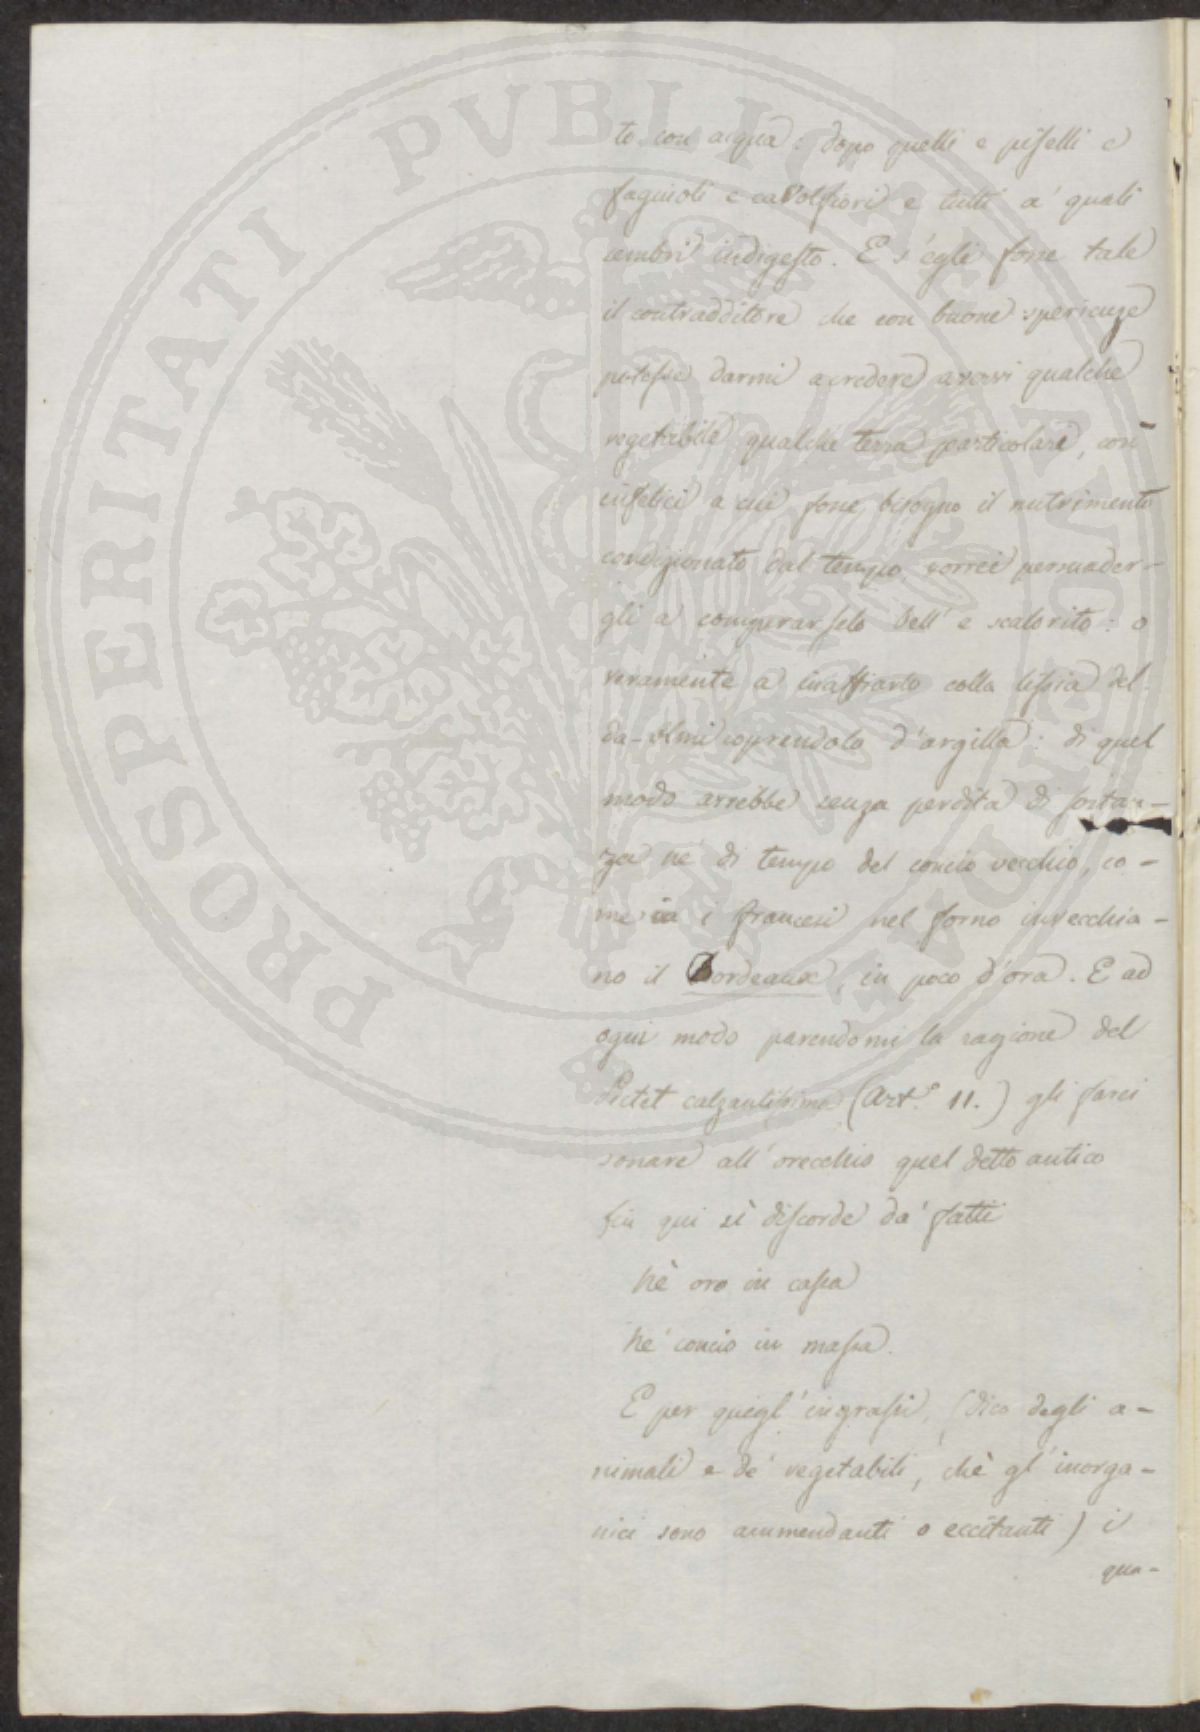 to con acqua: dopo quelli e piselli e
fagiuoli e cavolfiori e tutti a' quali
sembri indigesto. E s'egli fosse tale
il contradditore che con buone sperienze
potesse darmi a credere avervi qualche
vegetabile, qualche terra particolare, con
infelici a cui fosse bisogno il nutrimento
condizionato dal tempo, vorrei persuader-
gli a comperarselo bell' e scalorito: o
veramente a inaffiarlo colla lissia del
da-Olmi coprendolo d'argilla: di quel
modo arrebbe senza perdita di sosta-
za nè di tempo del concio vecchio, co-
me i francesi nel forno invecchia-
no il Bordeaux, in poco d'ora. E ad
ogni modo parendomi la ragione del
Pictet calzantissima (Art.° 11.) gli farei
sonare all' orecchio quel detto antico
fin qui sì discorde da' fatti
Nè oro in cassa
Nè concio in massa.
E per quegl' ingrassi, (dico degli a-
nimali e de' vegetabili, chè gl' inorga-
nici sono ammendanti o eccitanti) i
qua-
PROSPERITATI PUBLICAE